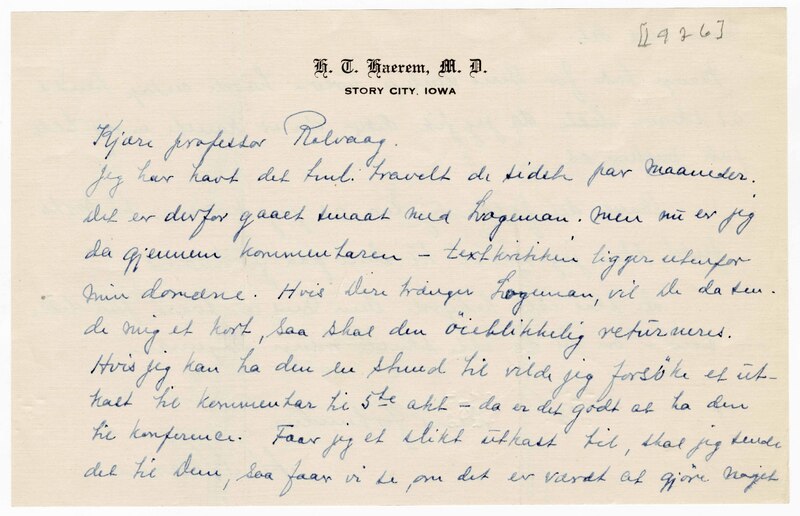 [1926]
H. T. Haerem, M. D.
STORY CITY, IOWA
Kjære professor Rolvaag.
Jeg har havt det travelt de sidste par maaneder.
Det er derfor gaaet smaat med Logeman. Men nu er jeg
da gjennem kommentaren – textkritiken ligger utenfor
min domæne. Hvis Dere trænger Logeman, vil De da sen-
de mig et kort, saa skal den öieblikkelig returneres.
Hvis jeg kan ha den en stund til vilde jeg forsöke et ut-
kast til kommentar til 5te akt – da er det godt at ha den
til konference. Faar jeg et slikt utkast til, skal jeg sende
det til Dem, saa faar vi se, om det er værdt at gjöre noget